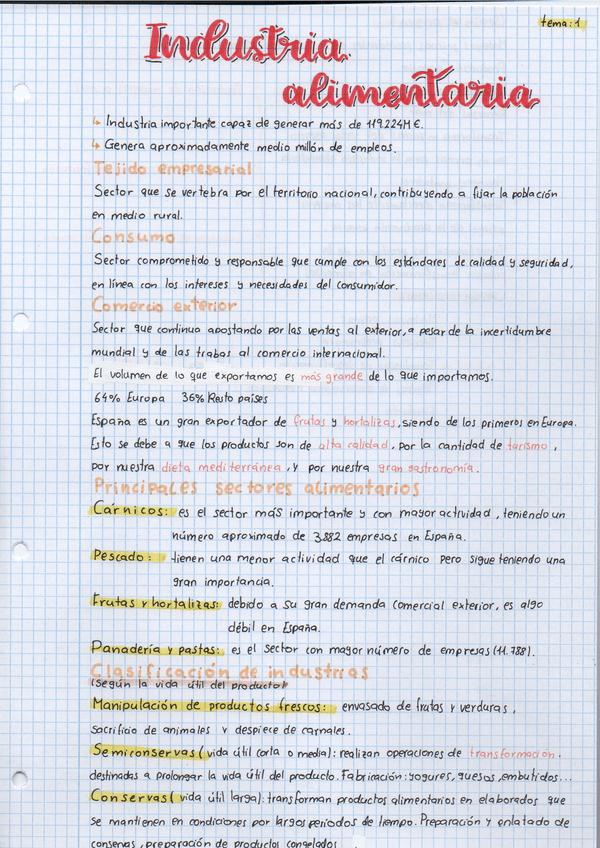 tema: 1
Industria
alimentaria
↳ Industria importante capaz de generar más de 119.224M €.
↳ Genera aproximadamente medio millón de empleos.
Tejido empresarial
Sector que se vertebra por el territorio nacional, contribuyendo a fijar la población
en medio rural.
Consumo
Sector comprometido y responsable que cumple con los estándares de calidad y seguridad,
en línea con los intereses y necesidades del consumidor.
Comercio exterior
Sector que continua apostando por las ventas al exterior, a pesar de la incertidumbre
mundial y de las trabas al comercio internacional.
El volumen de lo que exportamos es más grande de lo que importamos.
64% Europa 36% Resto países
España es un gran exportador de frutas y hortalizas, siendo de los primeros en Europa.
Esto se debe a que los productos son de alta calidad, por la cantidad de turismo,
por nuestra dieta mediterránea, y por nuestra gran gastronomía.
Principales sectores alimentarios
Cárnicos: es el sector más importante y con mayor actividad, teniendo un
número aproximado de 3.882 empresas en España.
Pescado: tienen una menor actividad que el cárnico pero sigue teniendo una
gran importancia.
Frutas y hortalizas: debido a su gran demanda comercial exterior, es algo
débil en España.
Panadería y pastas: es el sector con mayor número de empresas (11.788).
Clasificación de industrias
(según la vida útil del producto)
Manipulación de productos frescos: envasado de frutas y verduras,
sacrificio de animales y despiece de carnales.
Semiconservas (vida útil corta o media): realizan operaciones de transformación.
destinadas a prolongar la vida útil del producto. Fabricación: yogures, quesos, embutidos...
Conservas (vida útil larga): transforman productos alimentarios en elaborados que
se mantienen en condiciones por largos periodos de tiempo. Preparación y enlatado de
conservas, preparación de productos congelados